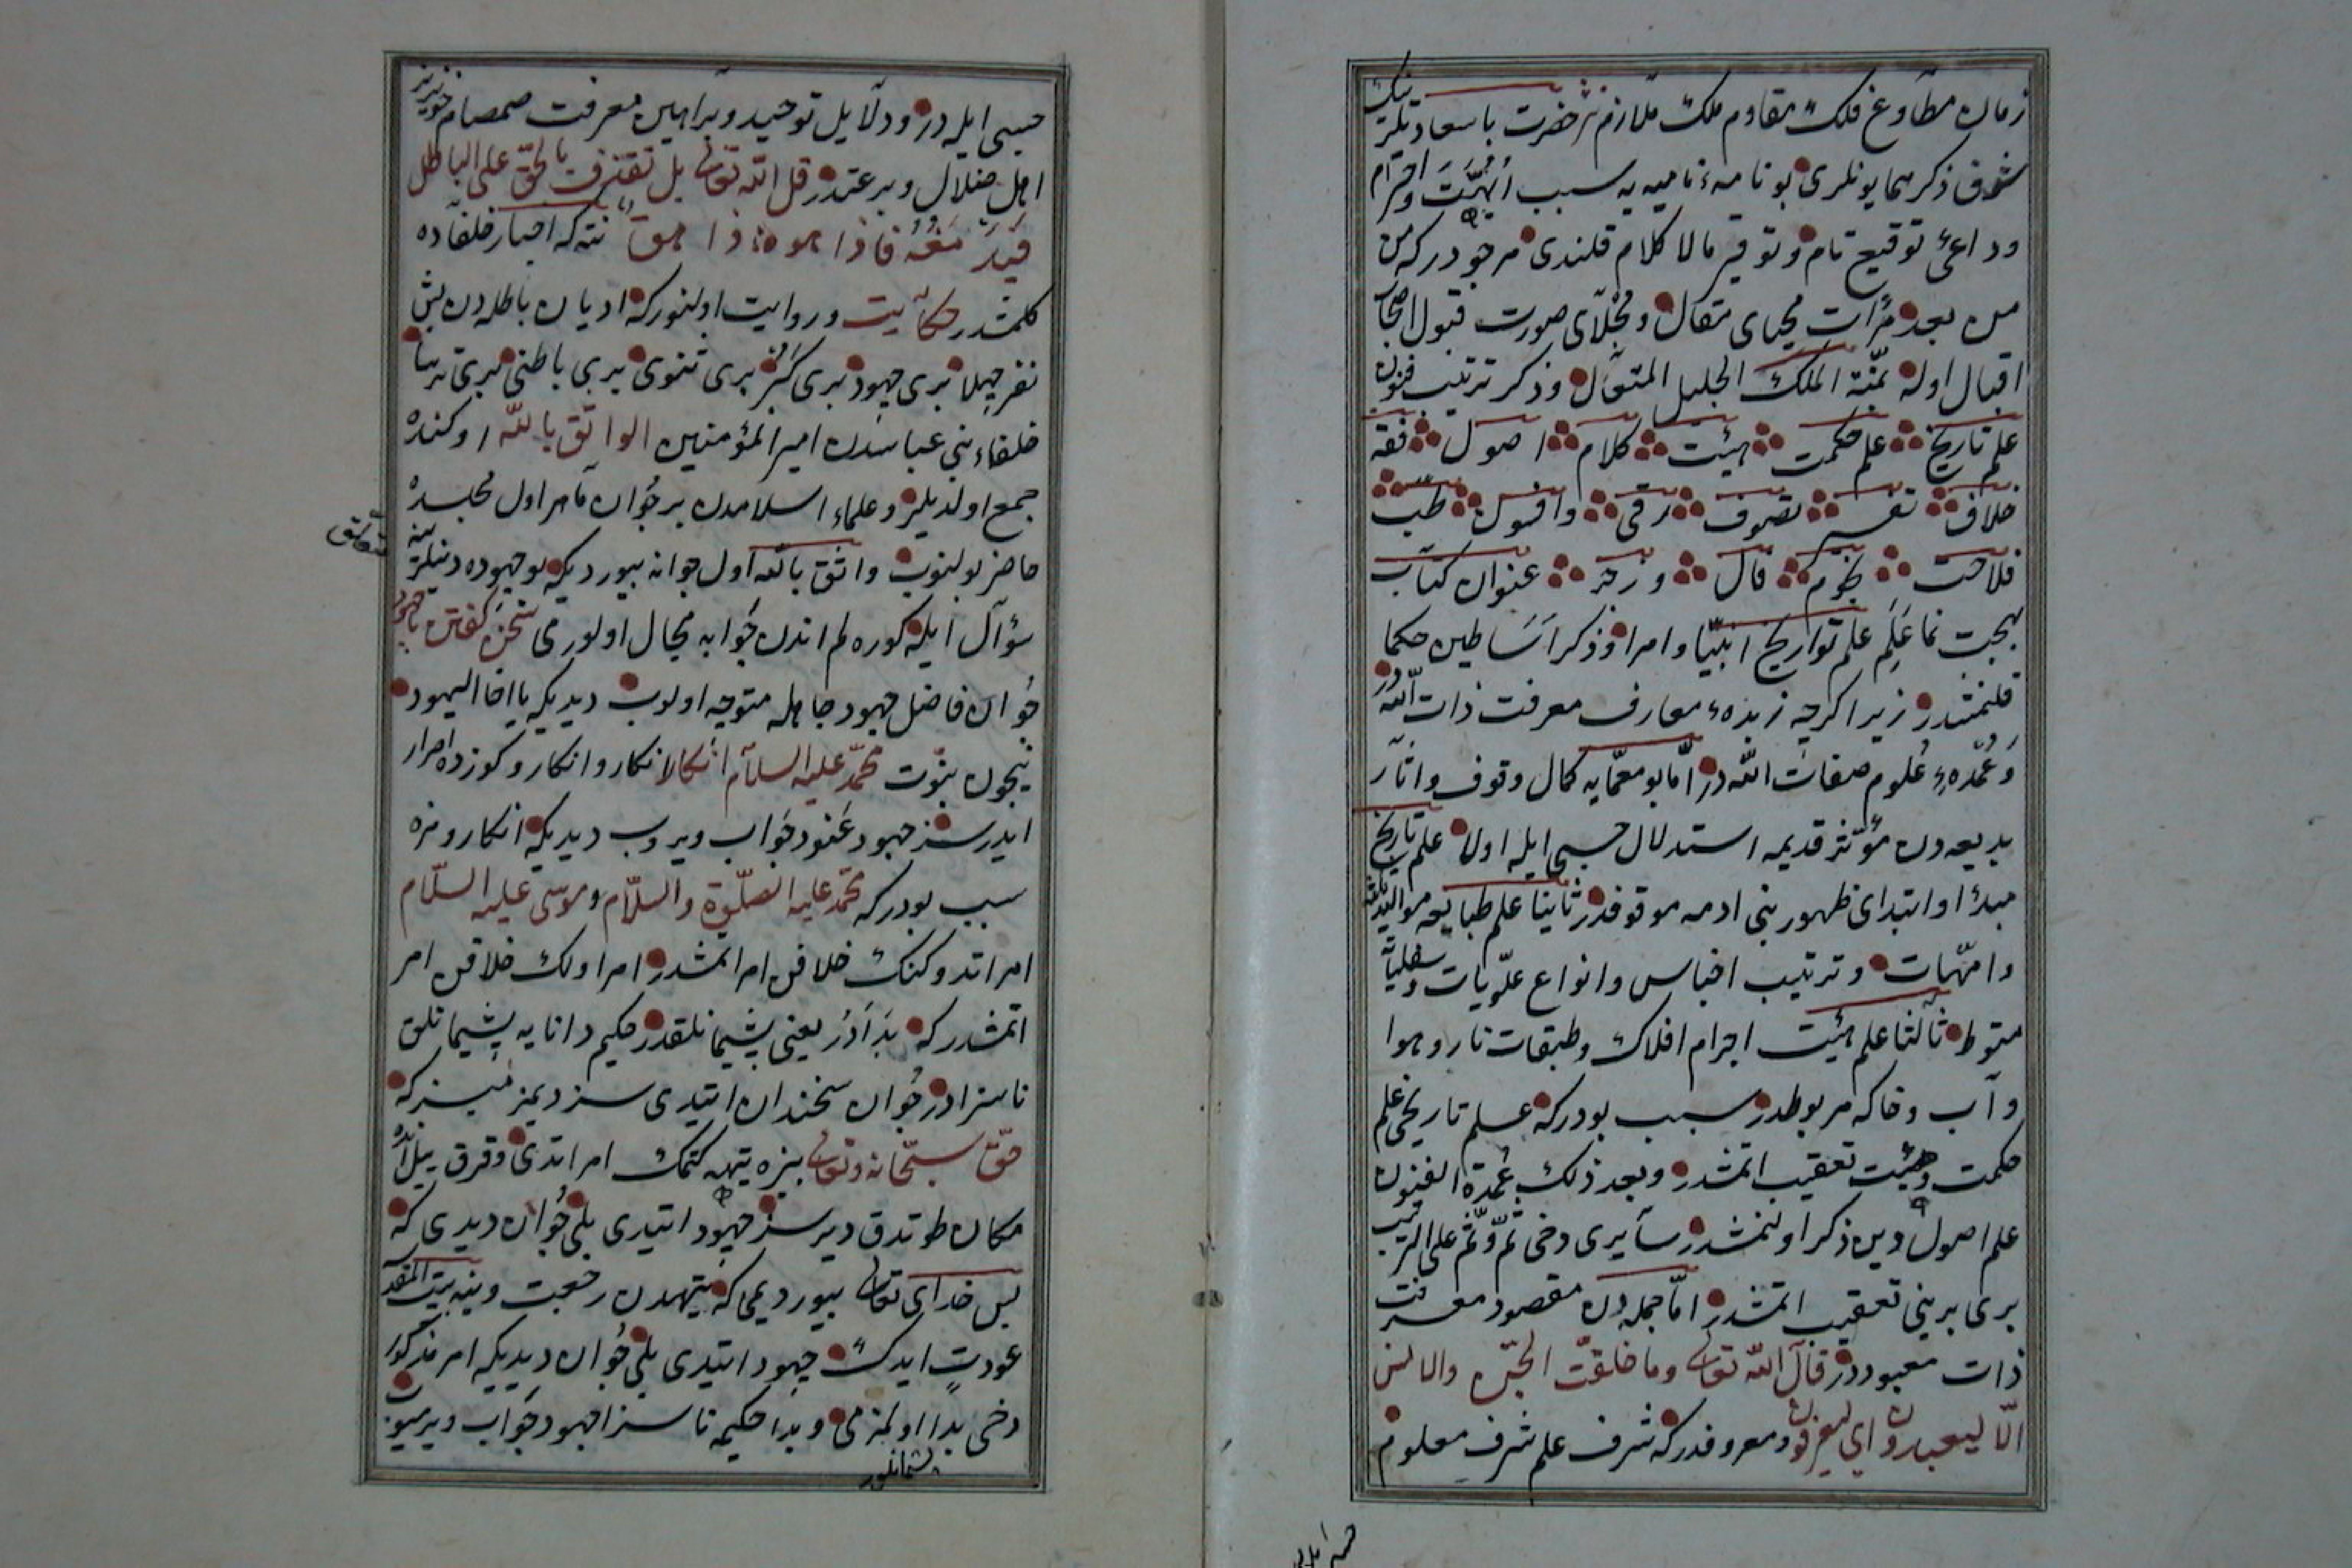 زمان مطاوع فلك مقاوم ملك ملازم حضرت باسعادتلرينك
شوق ذكر همايونلرى بو نامهٔ ناميه يه سبب ابهت واحترام
وداعئ توقيع تام وتوقير مالا كلام قلندى مرجودركه من
من بعد مرآت محياى مقال ومجلاى صورت قبول اصحاب
اقبال اوله بمنّة الملك الجليل المتعال وذكر ترتيب فنون
علم تاريخ علم حكمت هيئت كلام اصول فقه
خلاف تفسير تصوف رقى وافسون طبّ
فلاحت نجوم فال وزجر عنوان كتاب
بهجت نما عَلَمِ علم تواريخ انبيّا وامرا وذكر اساطين حكما
قلنمشدر زيرا اكرچه زبدهٔ معارف معرفت ذات اللّه در
وعمدهٔ علوم صفات اللّه در امّا بو معمّايه كمال وقوف واثار
بديعه دن مؤثر قديمه استدلال حسبى ايله اولا علم تاريخ
مبدا وابتداى ظهور بنى ادمه موقوفدر ثانيا علم طبايعه مواليد ثلثه
وامّهات وترتيب اجناس وانواع علويات وسفليات
متوط ثالثا علم هيئت اجرام افلاك وطبقات نار وهوا
وآب وخاكه مربوطدر سبب بودركه علم تاريخى علم
حكمت وهيئت تعقيب اتمشدر وبعد ذلك عمدة الفنون
علم اصول دين ذكر اولنمشدر سآيرى دخى ثمّ وثمّ على الترتيب
برى برينى تعقيب اتمشدر امّا جمله دن مقصود معرفت
ذات معبوددر قال اللّه تعالى وما خلقت الجنّ والانس
الّا ليعبدون اى ليعرفون ومعروفدركه شرف علم شرف معلوم
حسبى ايله در ودلآيل توحيد وبرآهين معرفت صمصام خونريز
اهل ضلال وبدعتدر قل اللّه تعالى بل نقذف بالحقّ على الباطل
فيدمغه فاذا هو زاهق نته كه اخبار خلفاده
كلمشدر حكآيت وروايت اولنوركه اديان باطله دن بش
نفر جهلا برى جهود برى كبر برى ثنوى برى باطنى برى ترسا
خلفاء بنى عباسدن امير المؤمنين الواثق باللّه اوكنده
جمع اولديلر وعلماء اسلامدن بر جُوان ماهر اول مجلسده
حاضر بولنوب واثق باللّه اول جوانه بيورديكه بو جهوده دينلرينه
متعلق
سؤآل ايله كوره لم اندن جوابه مجال اولورمى سخن كفتن با جهود
جُوان فاضل جهود جاهله متوجه اولوب ديديكه يا اخا اليهود
نيچون نبوّت محمّد عليه السلام انكار وانكاركوزده اصرار
ايدرسز جهود عنود جواب ويروب ديديكه انكارومزه
سبب بودركه محمّد عليه الصلوة والسلام وموسى عليه السلام
امر اتدوكنك خلافن امر اتمشدر امر اولك خلافن امر
اتمشدركه بداَدر يعنى پشيمانلقدر حكيم دانايه پشيمانلق
ناسزادر جُوان سخندان ايتدى سز ديمزميسزكه
حق سبحانه وتعالى بزه تيهه كتمك امر اتدى وقرق ييل انده
مكان طوتدق ديرسز جهود ايتدى بلى جُوان ديدى كه
بس خداى تعالى بيوردىمى كه تيهدن رجعت وينه بيت المقدّسه
عودت ايدك جهود ايتدى بلى جُوان ديديكه امر مذكور
دخى بدا اولمزمى وبدا حكيمه ناسزا جهود جواب ويرميوب
پشيمانلق